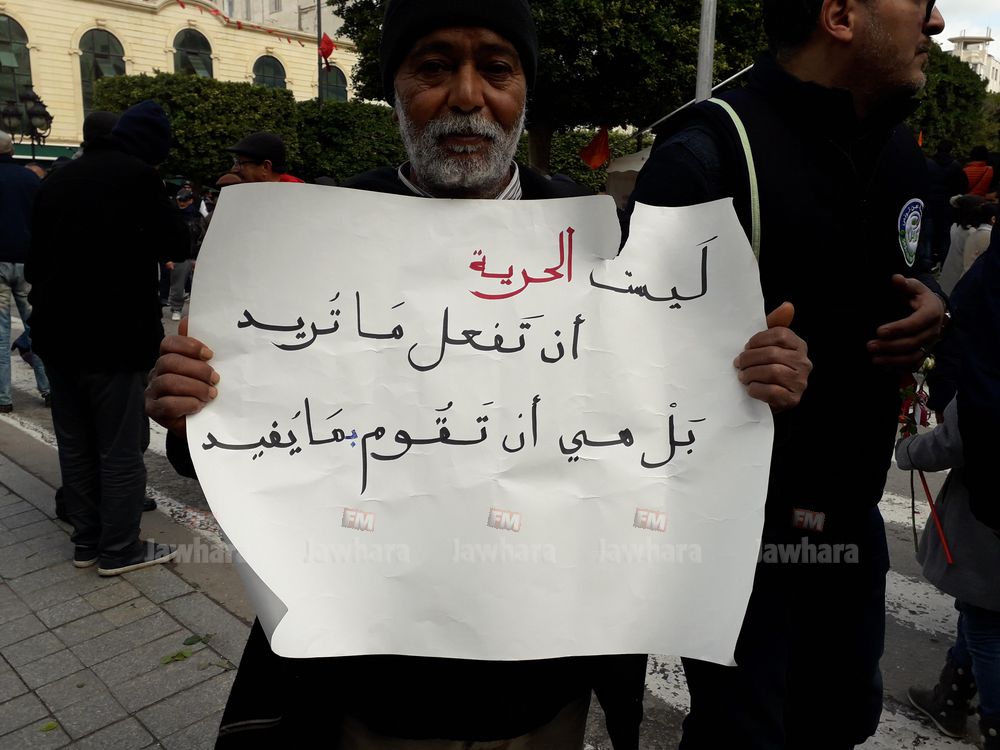 ليست الحرية
أن تَفعل مَا تُريد
بَلْ هي أن تَقُوم بمَا يُفيد
FM FM FM FM
Jawhara Jawhara Jawhara Jawhara Jawhara